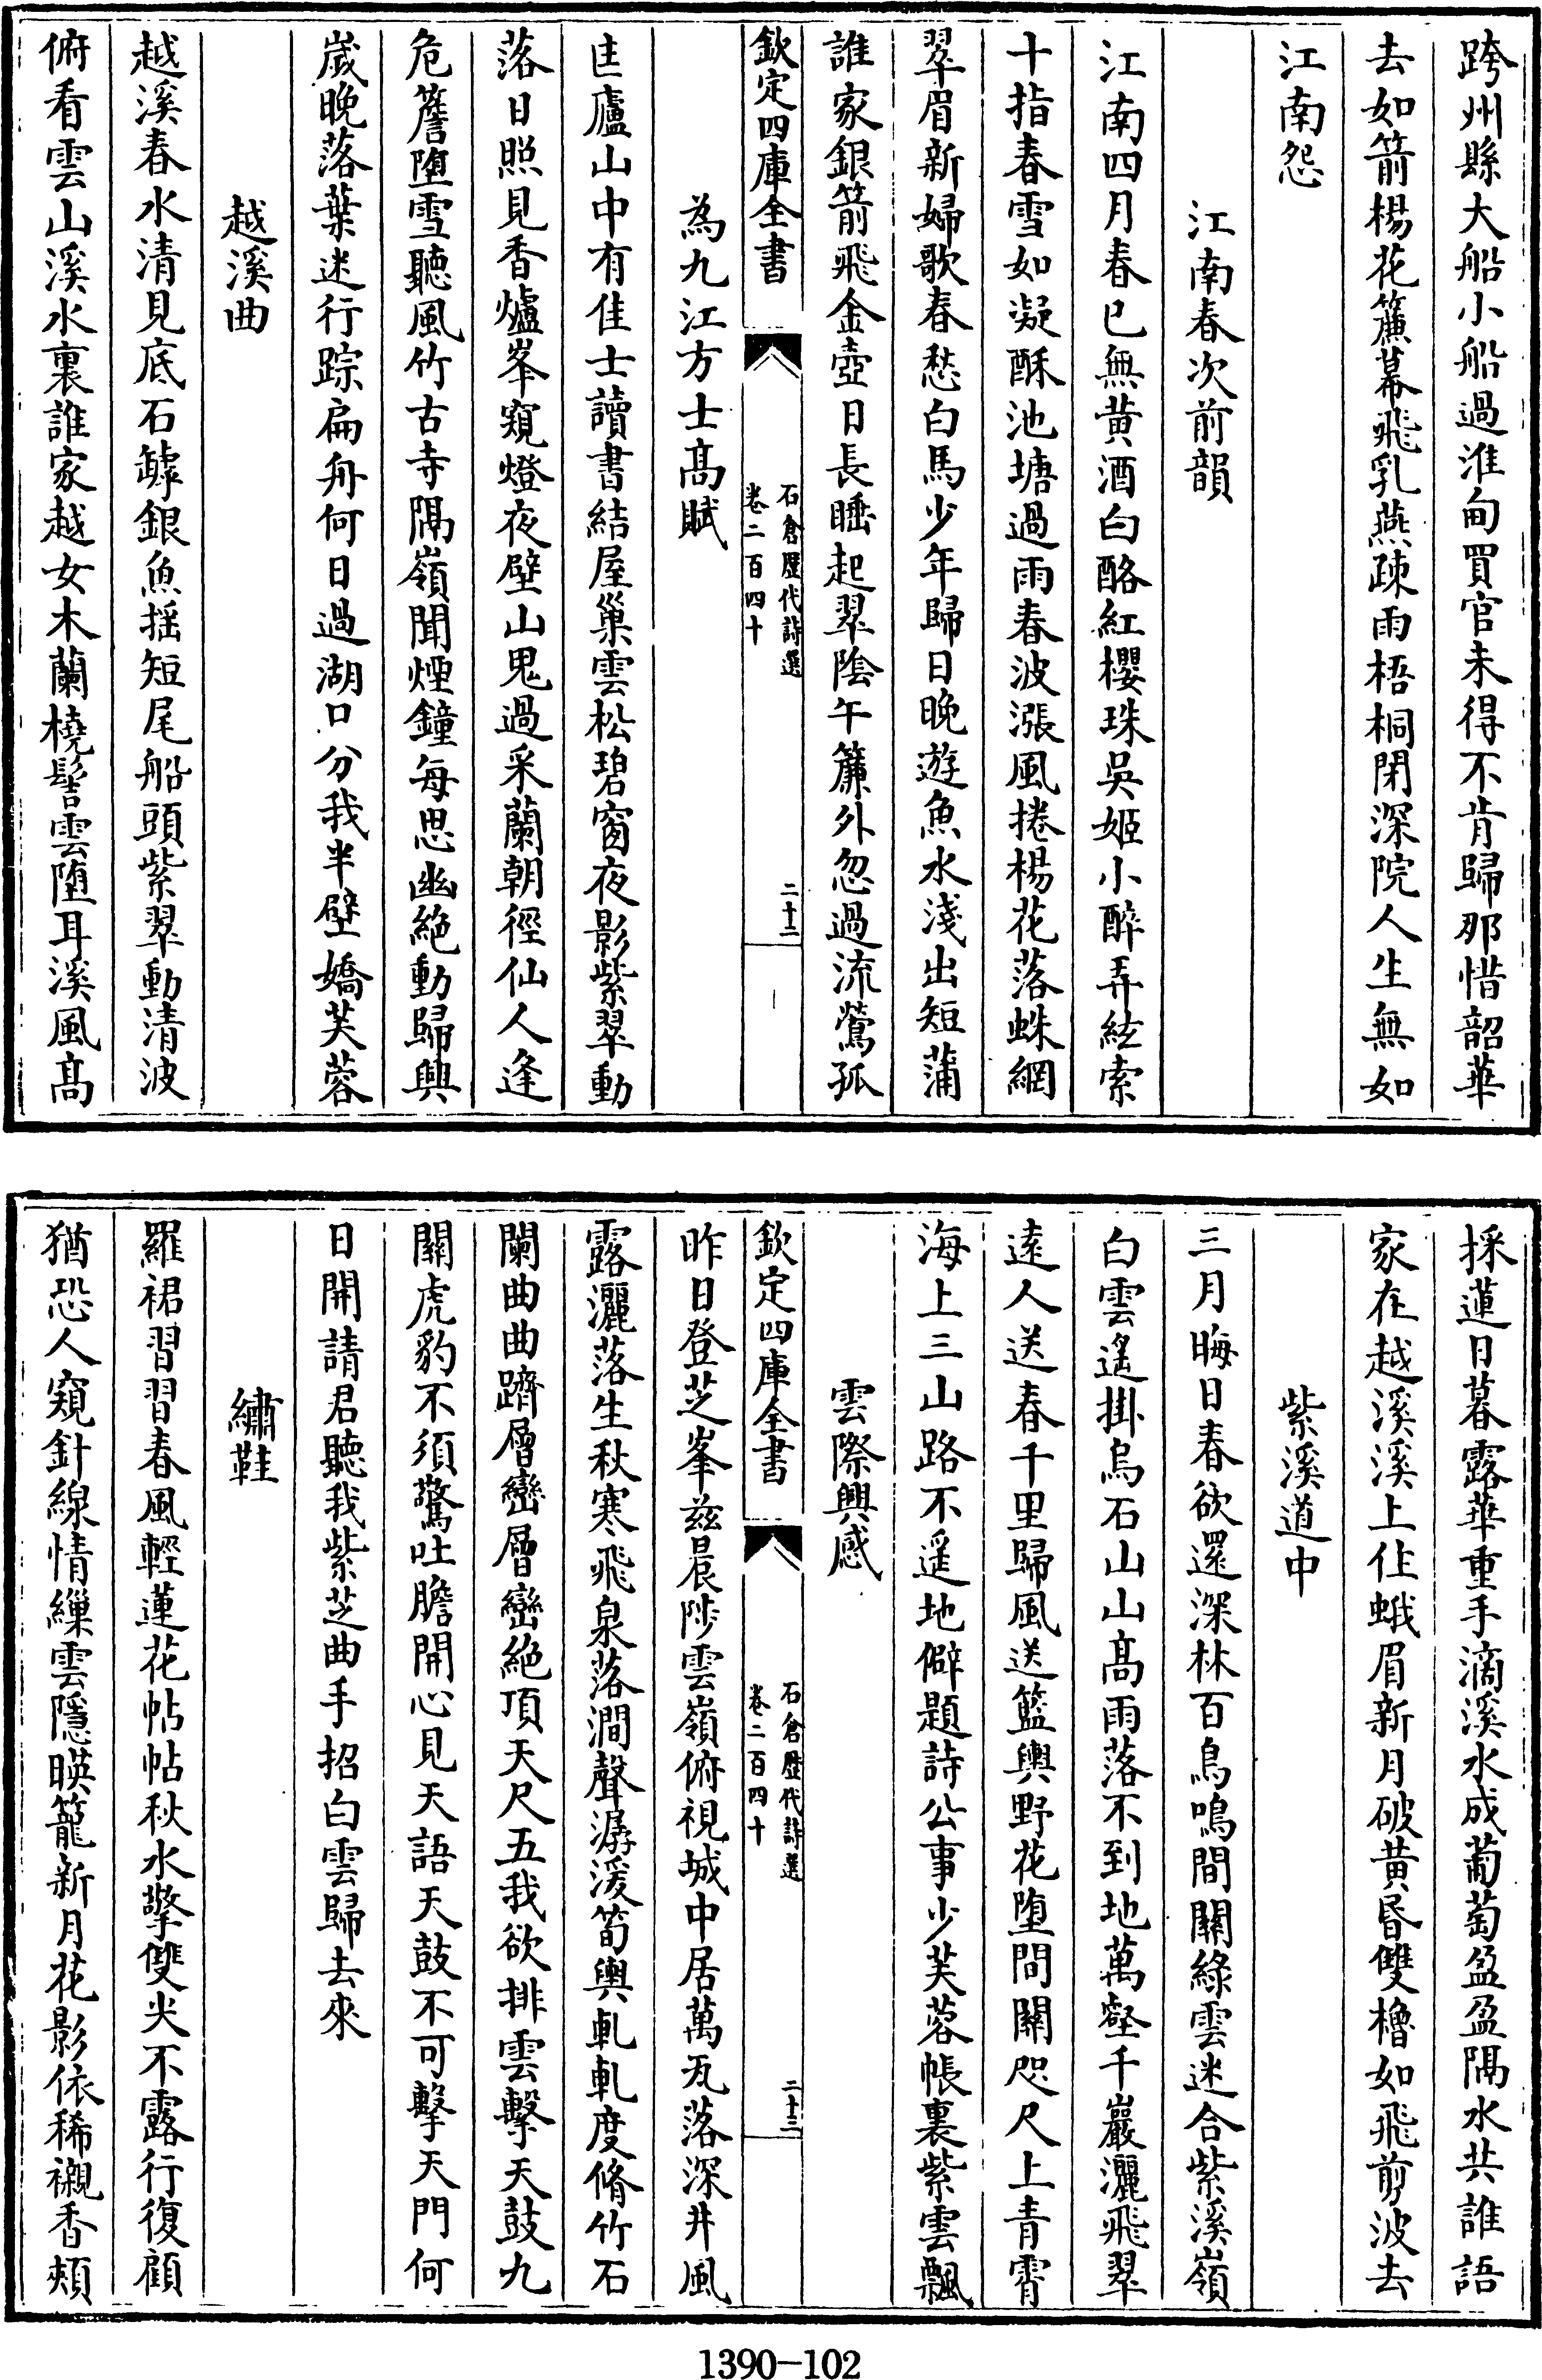 跨州縣大船小船過淮甸買官未得不肯歸那惜韶華
去如箭楊花簾幕飛乳燕疎雨梧桐閉深院人生無如
江南怨
江南春次前韻
江南四月春已無黄酒白酪紅櫻珠吳姬小醉弄絃索
十指春雪如凝酥池塘過雨春波漲風捲楊花落蛛網
翠眉新婦歌春愁白馬少年歸日晚遊魚水淺出短蒲
誰家銀箭飛金壺日長睡起翠陰午簾外忽過流鶯孤
欽定四庫全書
石倉歷代詩選
卷二百四十
二十二
為九江方士髙賦
匡廬山中有佳士讀書結屋巢雲松碧窗夜影紫翠動
落日照見香爐峯窺燈夜壁山鬼過采蘭朝徑仙人逢
危簷墮雪聽風竹古寺隔嶺聞煙鐘每思幽絶動歸興
嵗晚落葉迷行踪扁舟何日過湖口分我半壁嬌芙蓉
越溪曲
越溪春水清見底石罅銀魚揺短尾船頭紫翠動清波
俯看雲山溪水裏誰家越女木蘭橈髻雲墮耳溪風髙
採蓮日暮露華重手滴溪水成葡萄盈盈隔水共誰語
家在越溪溪上住蛾眉新月破黄昏雙櫓如飛剪波去
紫溪道中
三月晦日春欲還深林百鳥鳴間關綠雲迷合紫溪嶺
白雲遙掛烏石山山髙雨落不到地萬壑千巖灑飛翠
逺人送春千里歸風送籃輿野花墮間關咫尺上青霄
海上三山路不遥地僻題詩公事少芙蓉帳裏紫雲飄
雲際興感
欽定四庫全書
石倉歷代詩選
卷二百四十
二十三
昨日登芝峯兹晨陟雲嶺俯視城中居萬瓦落深井風
露灑落生秋寒飛泉落澗聲潺湲筍輿軋軋度脩竹石
闌曲曲躋層巒層巒絶頂天尺五我欲排雲擊天鼓九
關虎豹不須驚吐膽開心見天語天鼓不可擊天門何
日開請君聽我紫芝曲手招白雲歸去來
繡鞋
羅裙習習春風輕蓮花帖帖秋水擎雙尖不露行復顧
猶恐人窺針線情繅雲隱暎籠新月花影依稀襯香頰
1390-102